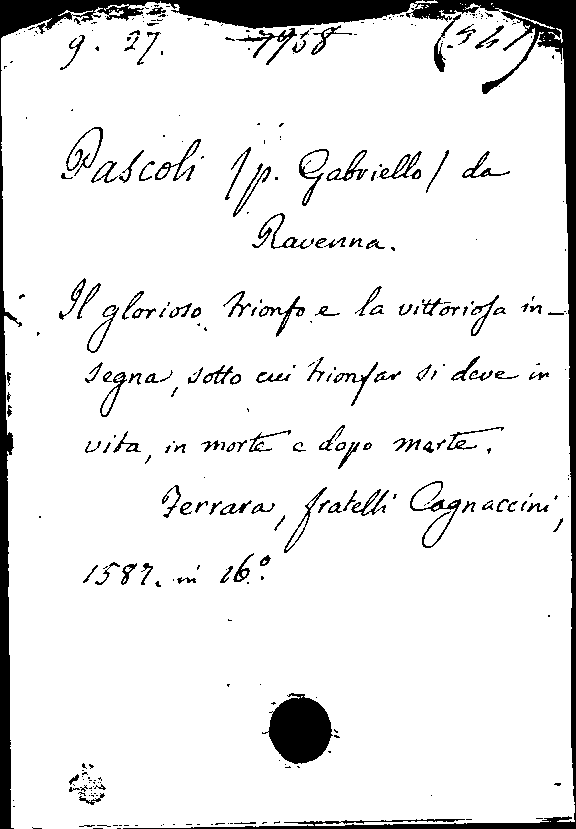 9. 27. 7958 (541)
Pascoli (p. Gabriello) da
Ravenna.
Il glorioso trionfo e la vittoriosa in-
segna, sotto cui trionfar si deve in
vita, in morte e dopo morte.
Ferrara, fratelli Cagnaccini,
1587. in 16º.